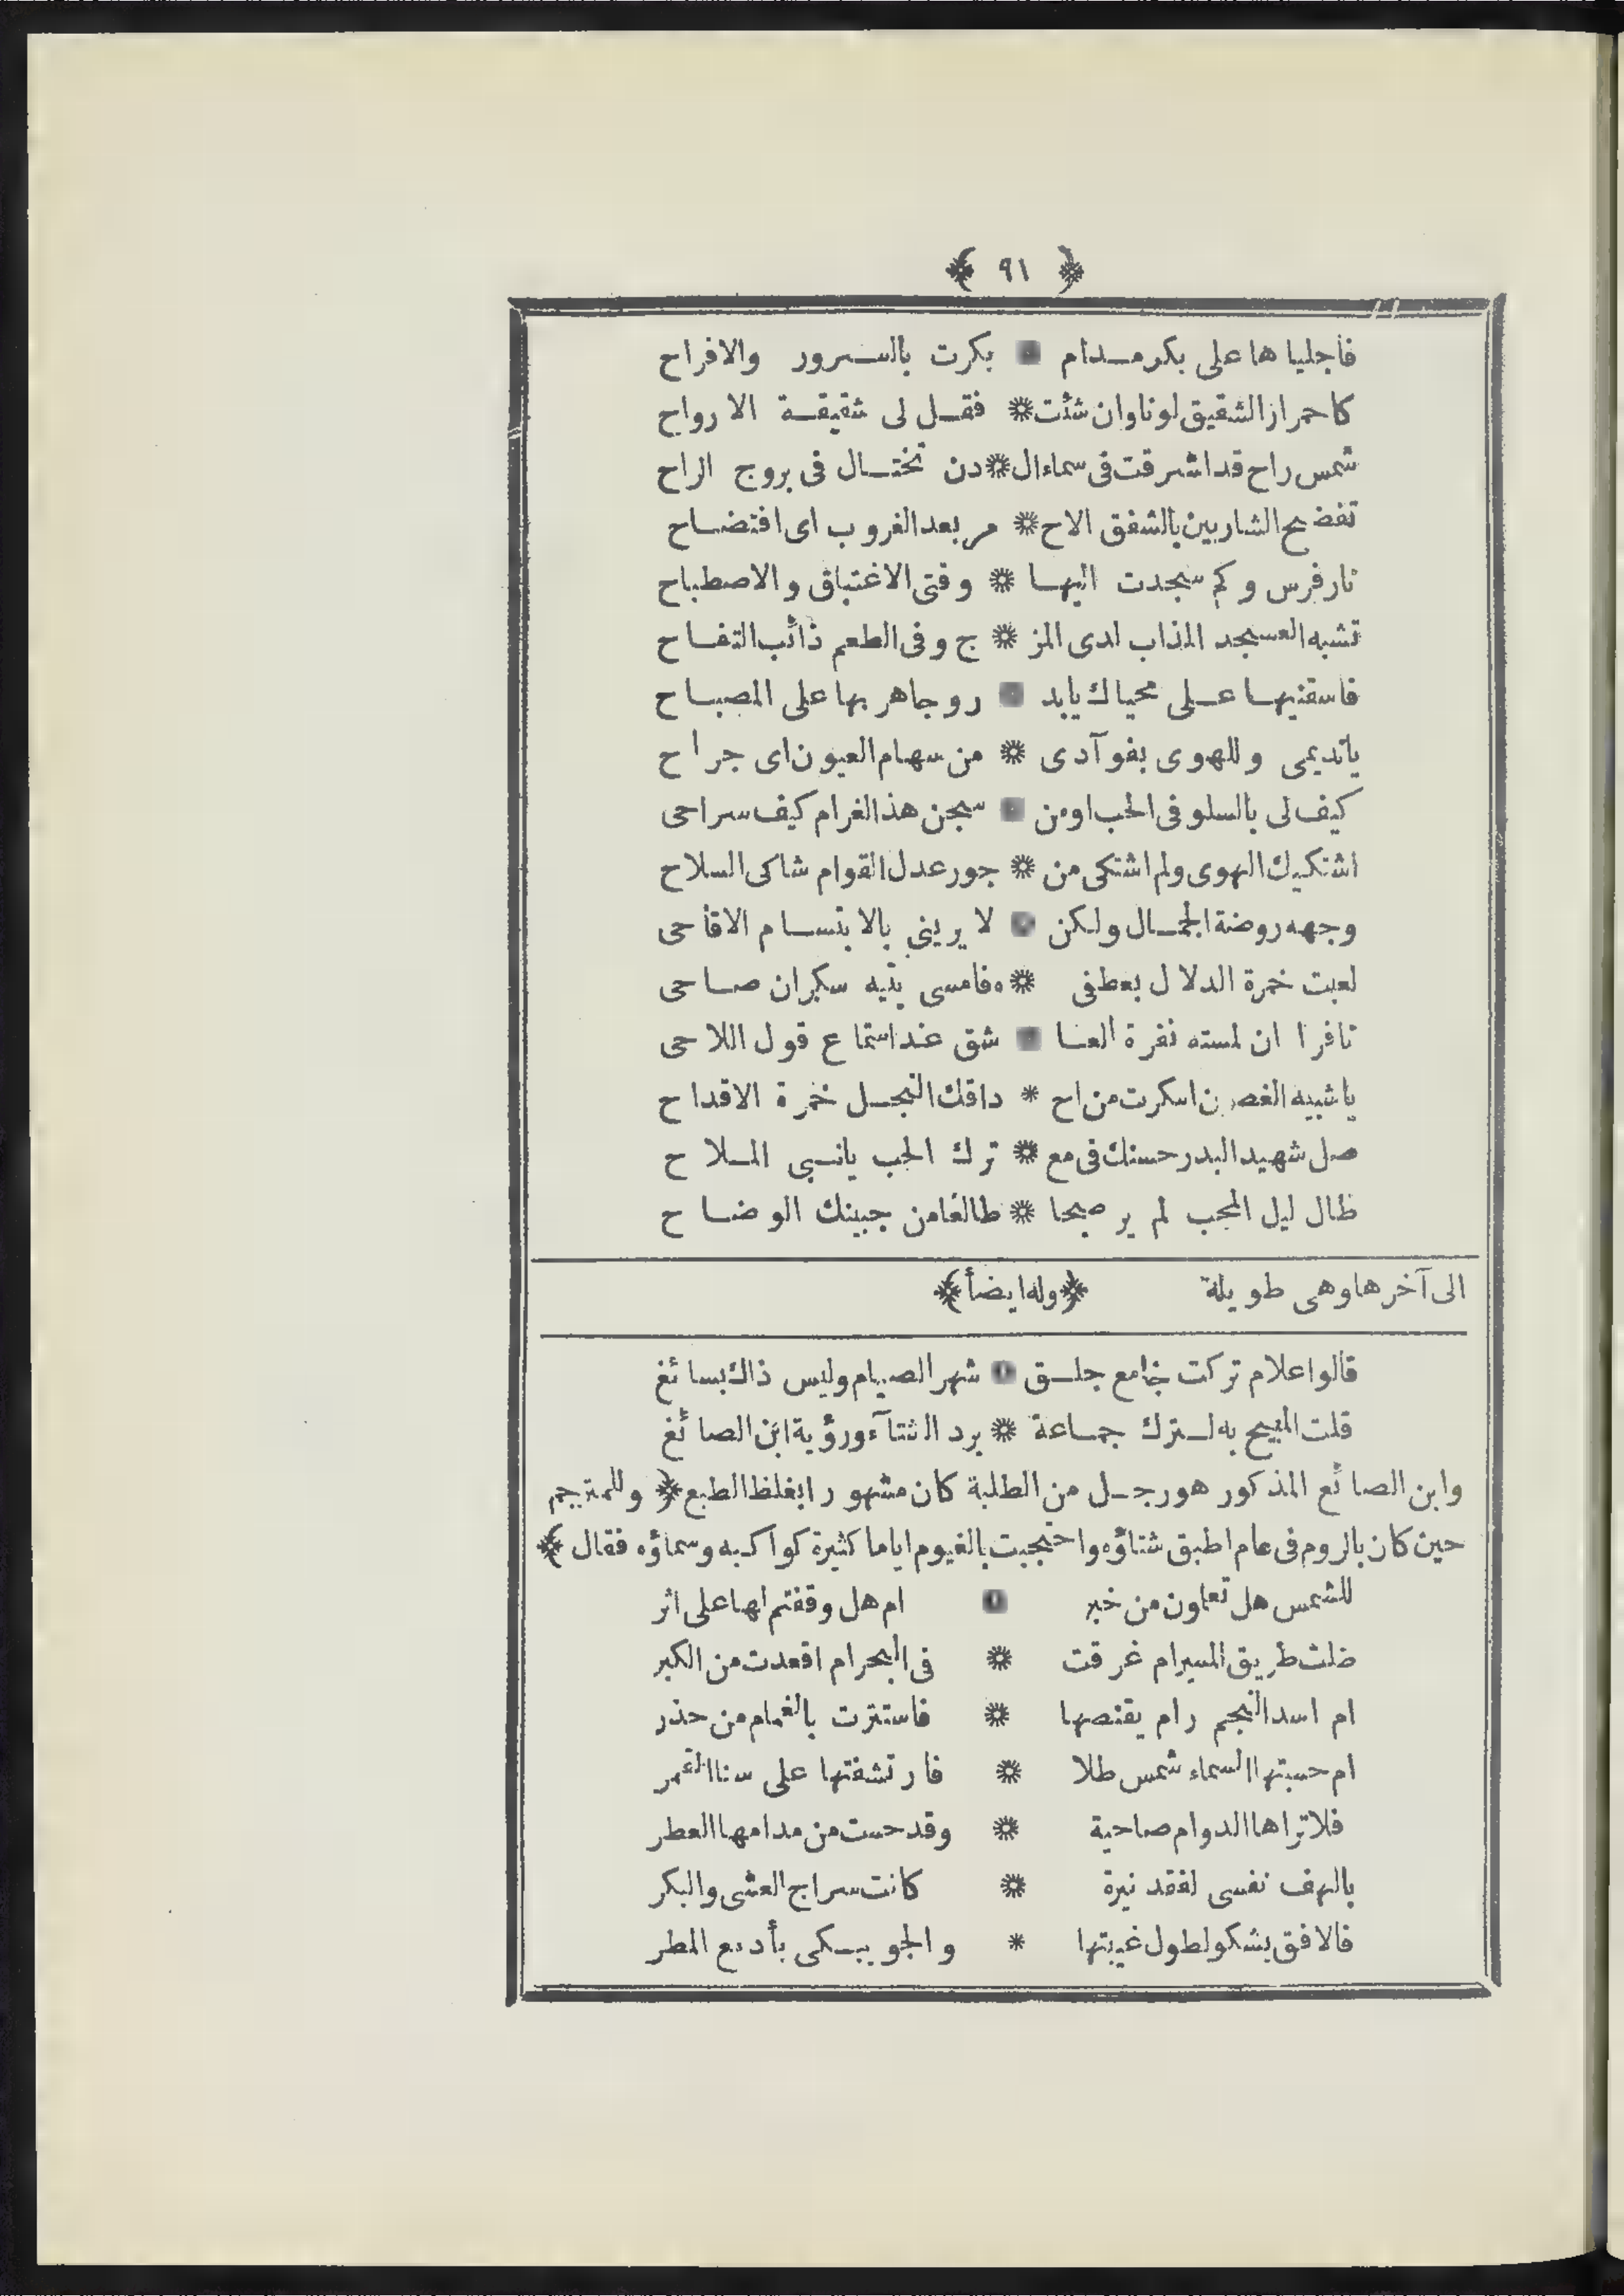 ﴿ ٩١ ﴾
فاجلياها على بكر مدام * بكرت بالسرور والافراح
كاحمراز الشقيق لونا وان شئت * فقل لى شقيقة الارواح
شمس راح قد اشرقت فى سماء ال * دن تختال فى بروج الراح
تفضح الشاربين بالشفق الاح * مر بعد الغروب اى افتضاح
نار فرس وكم سجدت اليها * وقتى الاغتباق والاصطباح
تشبه العسجد المذاب لدى المز * ج وفى الطعم ذائب التفاح
فاسقنيها على محياك يابد * ر وجاهر بها على المصباح
يانديمى وللهوى بفوآدى * من سهام العيون اى جراح
كيف لى بالسلو فى الحب او من * سجن هذ الغرام كيف سراحى
اشتكيك الهوى ولم اشتكى من * جور عدل القوام شاكى السلاح
وجهه روضة الجمال ولكن * لا يرينى بالابتسام الاقاحى
لعبت خمرة الدلال بعطفى * ه فامسى بتيه سكران صاحى
نافرا ان لمسته نفرة العا * شق عند استماع قول اللاحى
ياشبيه الغصن اسكرت من اح * داقك النجل خمرة الاقداح
صل شهيد البدر حسنك فى مع * ترك الحب يانبى الملاح
طال ليل المحب لم ير صبحا * طالعا من جبينك الوضاح
الى آخرها وهى طويلة ﴿وله ايضاً﴾
قالوا علام تركت جامع جلق * شهر الصيام وليس ذاك بسائغ
قلت المبيح به لترك جماعة * برد الشتآء ورؤية ابن الصائغ
وابن الصائغ المذكور هو رجل من الطلبة كان مشهورا بغلظ الطبع ﴿ وللمترجم
حين كان بالروم فى عام اطبق شتاؤه واحتجبت بالغيوم اياما كثيرة كواكبه وسماؤه فقال ﴾
للشمس هل تعلمون من خبر * ام هل وقفتم لها على اثر
ضلت طريق المسير ام غرقت * فى البحر ام اقعدت من الكبر
ام اسد النجم رام يقنصها * فاستترت بالغمام من حذر
ام حسبتها السماء شمس طلا * فارتشفتها على سنا القمر
فلا تراها الدوام صاحية * وقد حست من مدامها العطر
يالهف نفسى لفقد نيرة * كانت سراج العشى والبكر
فالافق يشكو لطول غيبتها * والجو يبكى بأدمع المطر